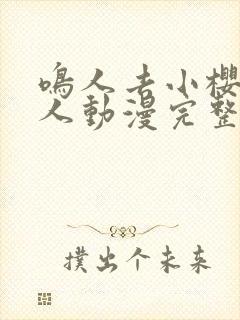 鳴人去小櫻
人動漫完整
撲出个未来